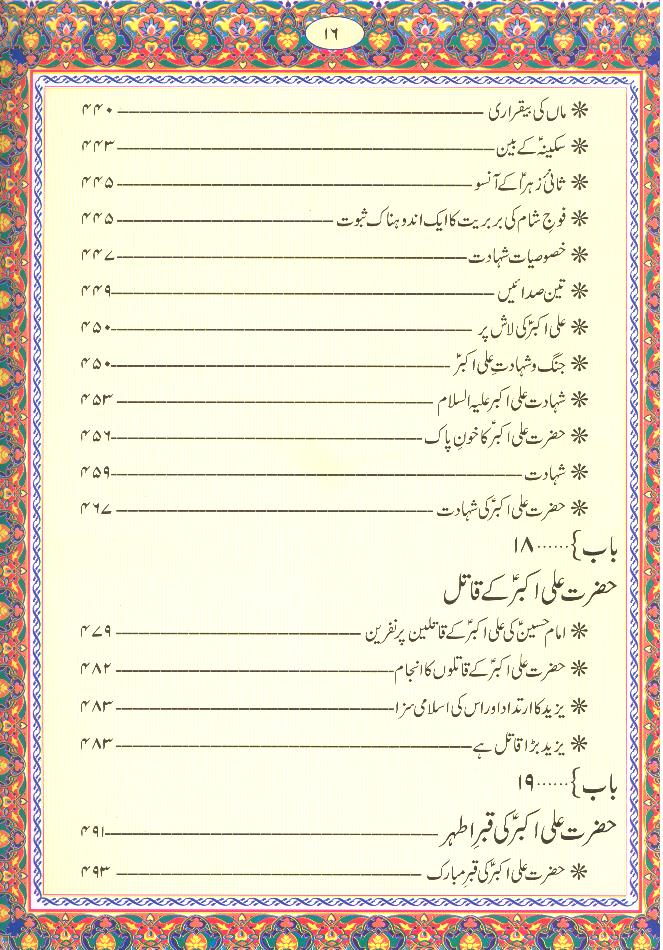 ۱۶
❋ ماں کی بیقراری ــــــــــ ۴۴۰
❋ سکینہؑ کے بین ــــــــــ ۴۴۳
❋ ثانیٔ زہراؑ کے آنسو ــــــــــ ۴۴۵
❋ فوجِ شام کی بربریت کا ایک اندوہناک ثبوت ــــــــــ ۴۴۵
❋ خصوصیات شہادت ــــــــــ ۴۴۷
❋ تین صدائیں ــــــــــ ۴۴۹
❋ علی اکبرؑ کی لاش پر ــــــــــ ۴۵۰
❋ جنگ و شہادتِ علی اکبرؑ ــــــــــ ۴۵۰
❋ شہادت علی اکبر علیہ السلام ــــــــــ ۴۵۳
❋ حضرت علی اکبرؑ کا خونِ پاک ــــــــــ ۴۵۶
❋ شہادت ــــــــــ ۴۵۹
❋ حضرت علی اکبرؑ کی شہادت ــــــــــ ۴۶۷
باب } ...... ۱۸
حضرت علی اکبرؑ کے قاتل
❋ امام حسینؑ کی علی اکبرؑ کے قاتلین پر نفرین ــــــــــ ۴۷۹
❋ حضرت علی اکبرؑ کے قاتلوں کا انجام ــــــــــ ۴۸۲
❋ یزید کا ارتداد اور اس کی اسلامی سزا ــــــــــ ۴۸۳
❋ یزید بڑا قاتل ہے ــــــــــ ۴۸۳
باب } ...... ۱۹
حضرت علی اکبرؑ کی قبرِ اطہر ــــــــــ ۴۹۱
❋ حضرت علی اکبرؑ کی قبرِ مبارک ــــــــــ ۴۹۳